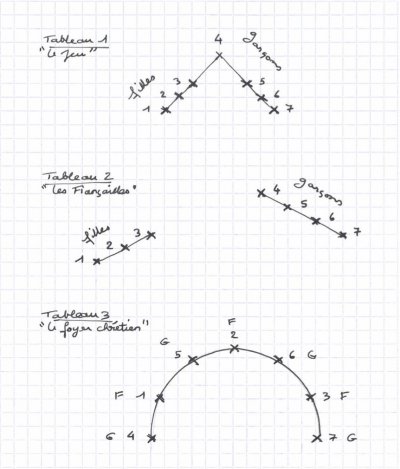 Tableau 1
"Le Jeu"
4
filles
garçons
3
5
2
6
1
7
Tableau 2
"Les Fiançailles"
4
garçons
5
filles
6
3
7
2
1
Tableau 3
"Le foyer chrétien"
F
2
G
5
6 G
F 1
3 F
G 4
7 G